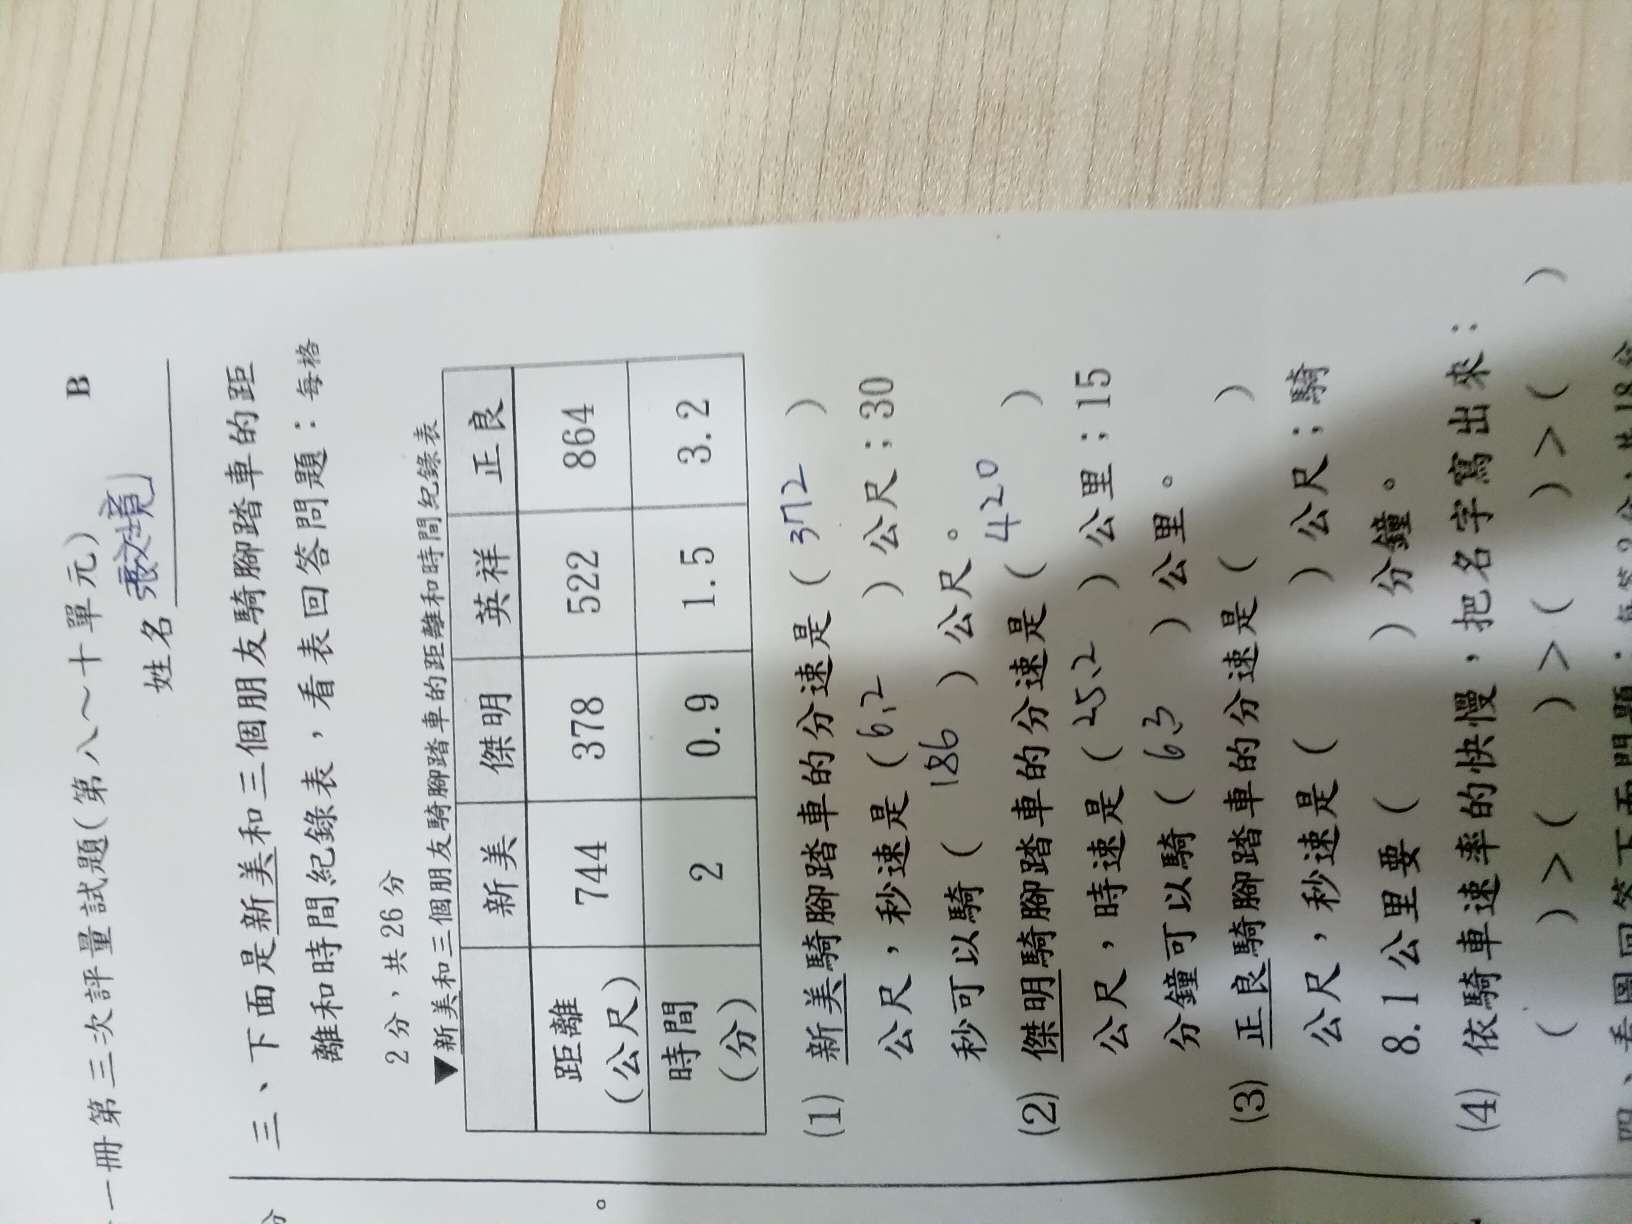 一冊第三次評量試題(第八～十單元)　B
姓名
三、下面是新美和三個朋友騎腳踏車的距
離和時間紀錄表，看表回答問題：每格
2分，共26分
▼新美和三個朋友騎腳踏車的距離和時間紀錄表
新美 傑明 英祥 正良
距離(公尺) 744 378 522 864
時間(分) 2 0.9 1.5 3.2
(1) 新美騎腳踏車的分速是( 372 )
公尺，秒速是( 6.2 )公尺；30
秒可以騎( 186 )公尺。
(2) 傑明騎腳踏車的分速是( 420 )
公尺，時速是( 25.2 )公里；15
分鐘可以騎( 6.3 )公里。
(3) 正良騎腳踏車的分速是( )
公尺，秒速是( )公尺；騎
8.1公里要( )分鐘。
(4) 依騎車速率的快慢，把名字寫出來：
( )>( )>( )>( )
。